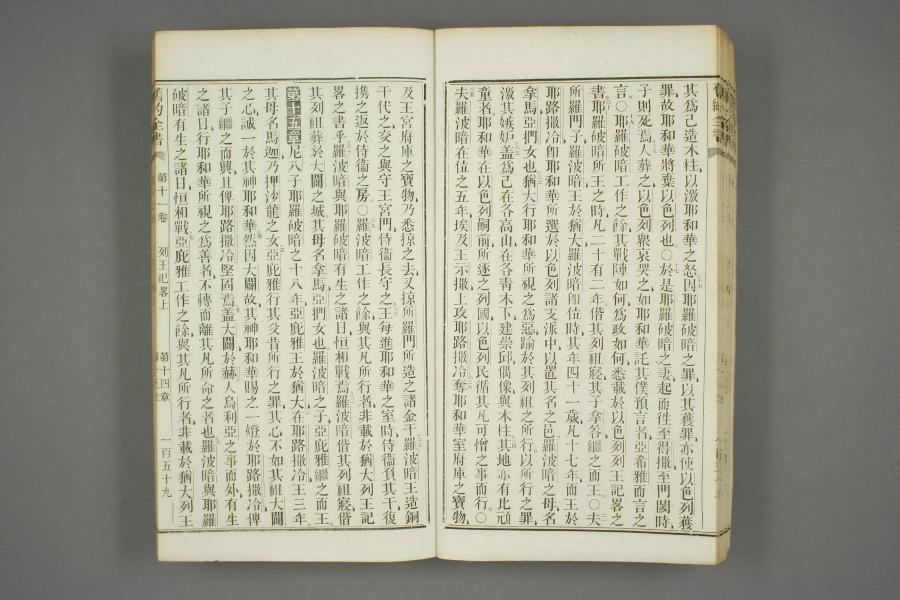 其爲己造木柱以激耶和華之怒因耶羅破暗之罪以其獲罪亦使以色列獲
罪故耶和華將棄以色列也○於是耶羅破暗之妻起而往至得撒至門閾時
子則死焉人葬之以色列衆哀哭之如耶和華託其僕預言者亞希雅而言之
言○耶羅破暗工作之餘其戰陣如何爲政如何悉載於以色列列王記畧之
書耶羅破暗所王之時凡二十有二年偕其列祖寢其子拿答繼之而王○夫
所羅門子羅波暗王於猶大羅波暗卽位時其年四十一歲凡十七年而王於
耶路撒冷卽耶和華所選於以色列諸支派中以置其名之邑羅波暗之母名
拿馬亞捫女也猶大行耶和華所視之爲惡踰於其列祖之所行以所行之罪
激其嫉妒蓋爲己在各高山在各靑木下建崇邱偶像與木柱其地亦有比頑
童者耶和華在以色列嗣前所逐之列國以色列民循其凡可憎之事而行○
夫羅波暗在位之五年埃及王示撒上攻耶路撒冷奪耶和華室府庫之寶物
及王宮府庫之寶物乃悉掠之去又掠所羅門所造之諸金干羅波暗王造銅
干代之交之與守王宮門侍衞長守之王每進耶和華之室時侍衞負其干復
携之返於侍衞之房○羅波暗工作之餘與其凡所行者非載於猶大列王記
畧之書乎羅波暗與耶羅破暗有生之諸日恒相戰焉羅波暗偕其列祖寢偕
其列祖葬於大闢之城其母名拿馬亞捫女也羅波暗之子亞庇雅繼之而王
第十五章尼八子耶羅破暗之十八年亞庇雅王於猶大在耶路撒冷王三年
其母名馬迦乃押沙龍之女亞庇雅行其父昔所行之罪其心不如其祖大闢
之心誠一於其神耶和華然因大闢故其神耶和華賜之一燈於耶路撒冷俾
其子繼之而興且俾耶路撒冷堅固焉蓋大闢於赫人烏利亞之事而外有生
之諸日行耶和華所視之爲善者不轉而離其凡所命之者也羅波暗與耶羅
破暗有生之諸日恒相戰亞庇雅工作之餘與其凡所行者非載於猶大列王
舊約全書 第十一卷 列王記畧上 第十四章 一百五十九